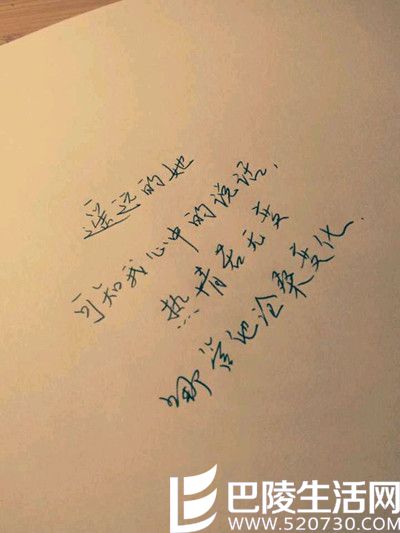 遥远的她
可知我心中的说话,
热情若无变
哪管他沧桑变化.
巴陵生活网
www.520730.com